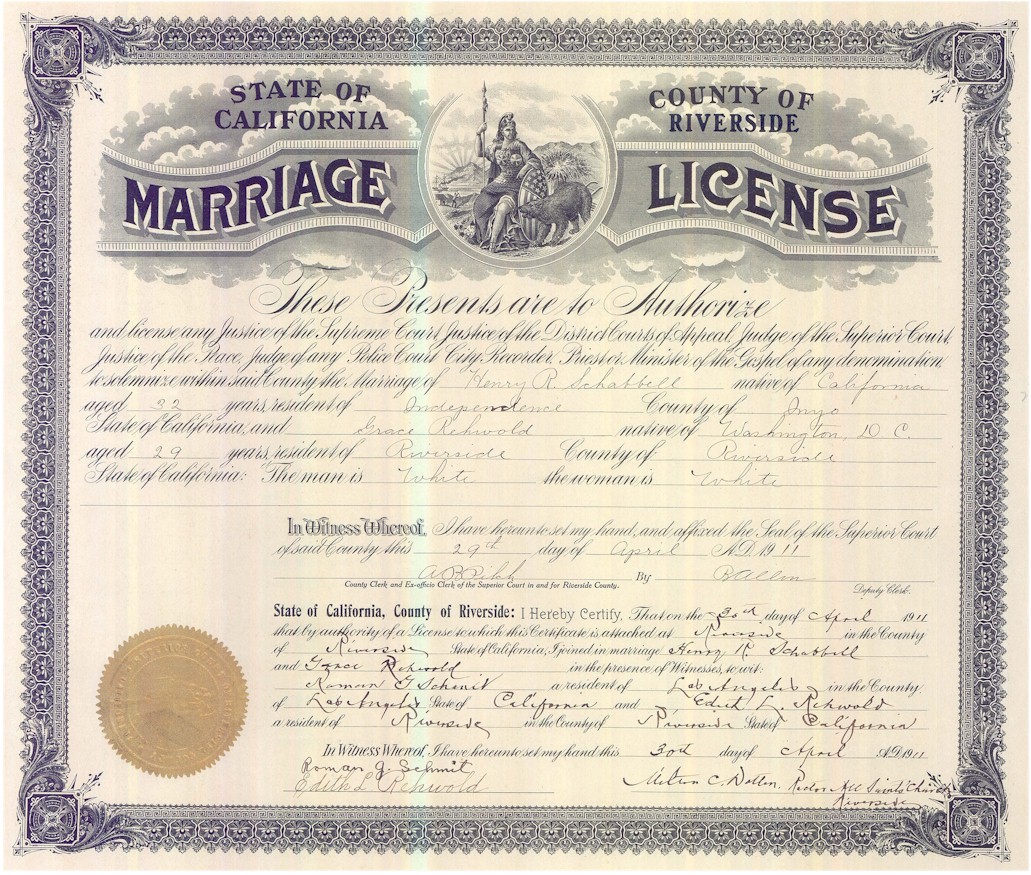 STATE OF CALIFORNIA
COUNTY OF RIVERSIDE
MARRIAGE LICENSE
These Presents are to Authorize
and license any Justice of the Supreme Court, Justice of the District Courts of Appeal, Judge of the Superior Court,
Justice of the Peace, Judge of any Police Court, City Recorder, Priest or Minister of the Gospel of any denomination,
to solemnize within said County the Marriage of Henry R. Schabbell native of California
aged 32 years, resident of Independence County of Inyo
State of California, and Grace Rehwold native of Washington, D.C.
aged 29 years, resident of Riverside County of Riverside
State of California: The man is White the woman is White
In Witness Whereof, I have hereunto set my hand, and affixed the Seal of the Superior Court
of said County this 29th day of April A.D. 1911
By
County Clerk and Ex-officio Clerk of the Superior Court in and for Riverside County.
Deputy Clerk.
State of California, County of Riverside: I Hereby Certify, That on the 30th day of April 1911
that by authority of a License to which this Certificate is attached at Riverside in the County
of Riverside State of California, I joined in marriage Henry R. Schabbell
and Grace Rehwold in the presence of Witnesses, to wit:
Roman G Schmit a resident of Los Angeles in the County,
of Los Angeles State of California and Edith L. Rehwold
a resident of Riverside in the County of Riverside State of California
In Witness Whereof, I have hereunto set my hand this 30th day of April A.D. 1911.
Roman G. Schmit
Edith L Rehwold
Milton C. Rector All Saints' Church
Riverside